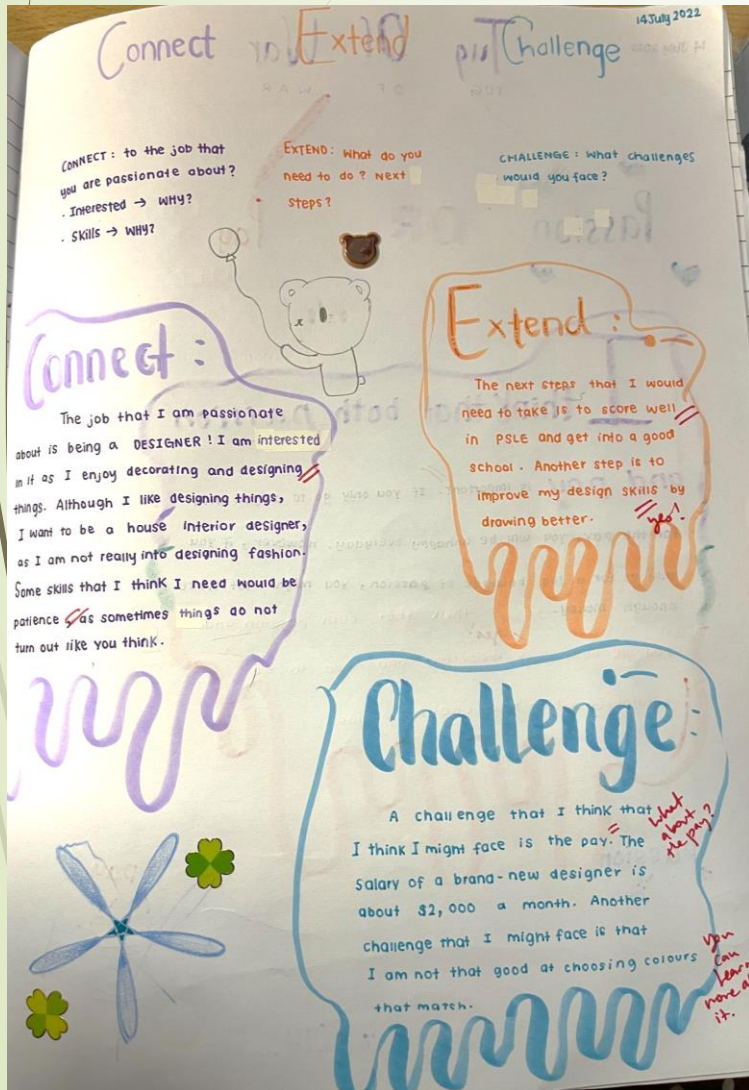 14 July 2022
Connect Extend Challenge
CONNECT: to the job that
you are passionate about?
. Interested → WHY?
. Skills → WHY?
EXTEND: What do you
need to do? Next
steps?
CHALLENGE: What challenges
would you face?
Connect:
The job that I am passionate
about is being a DESIGNER! I am interested
in it as I enjoy decorating and designing
things. Although I like designing things,
I want to be a house interior designer,
as I am not really into designing fashion.
Some skills that I think I need would be
patience as sometimes things do not
turn out like you think.
Extend:
The next steps that I would
need to take is to score well
in PSLE and get into a good
school. Another step is to
improve my design skills by
drawing better.
yes!
Challenge:
A challenge that I think that
I think I might face is the pay. The
salary of a brand-new designer is
about $2,000 a month. Another
challenge that I might face is that
I am not that good at choosing colours
that match.
What
about
the pay?
You
can
learn
more
it.